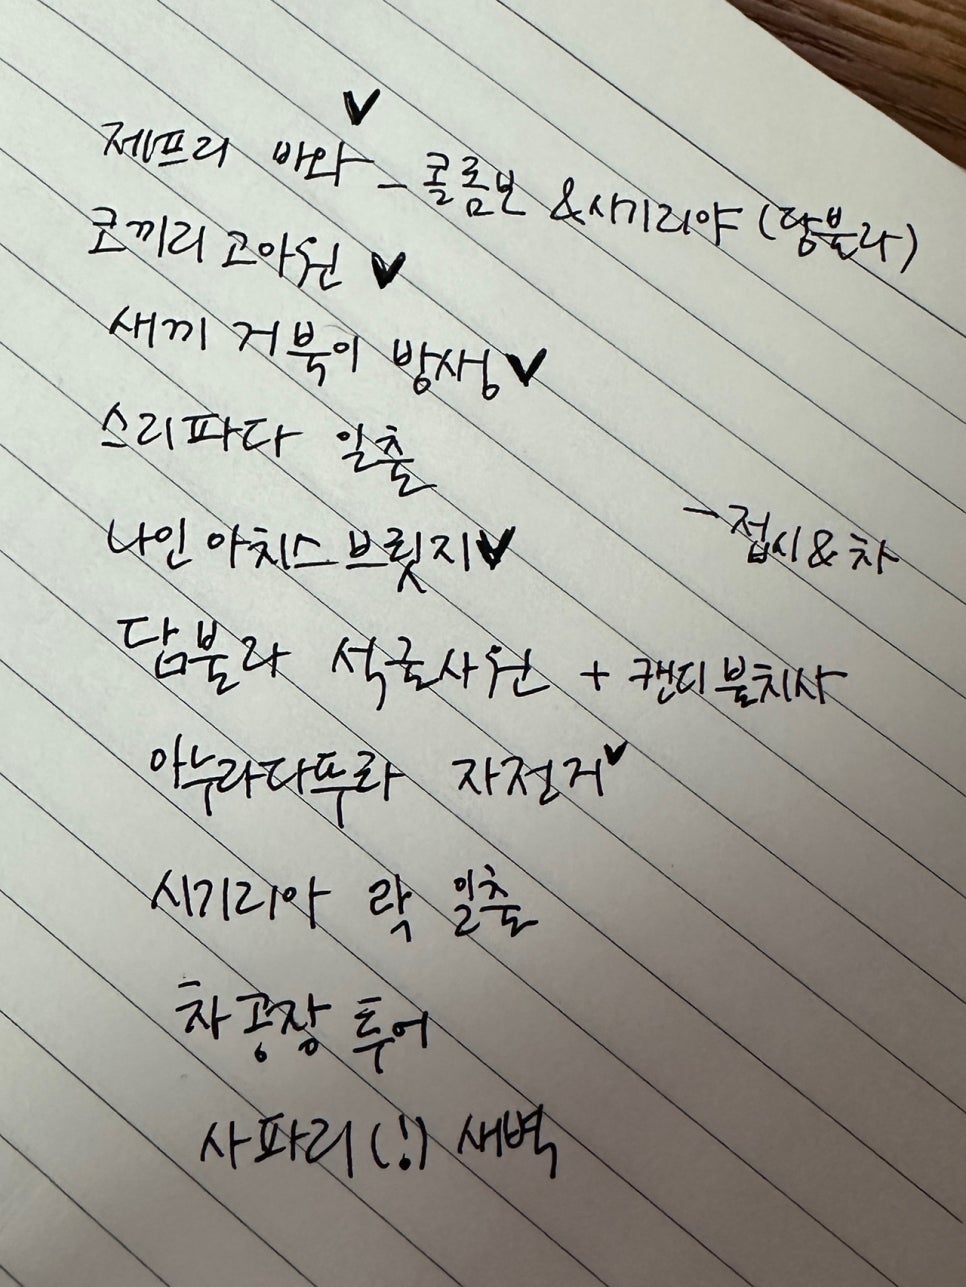 제프리 바와 ✓ - 콜롬보 & 사기리야 (담불라)
코끼리 고아원 ✓
새끼 거북이 방생 ✓
스리파다 일출
나인 아치스 브릿지 ✓
- 접시 & 차
담불라 석굴사원 + 캔디 불치사
아누라다뿌라 자전거 ✓
시기리아 락 일출
차 공장 투어
사파리 (!) 새벽